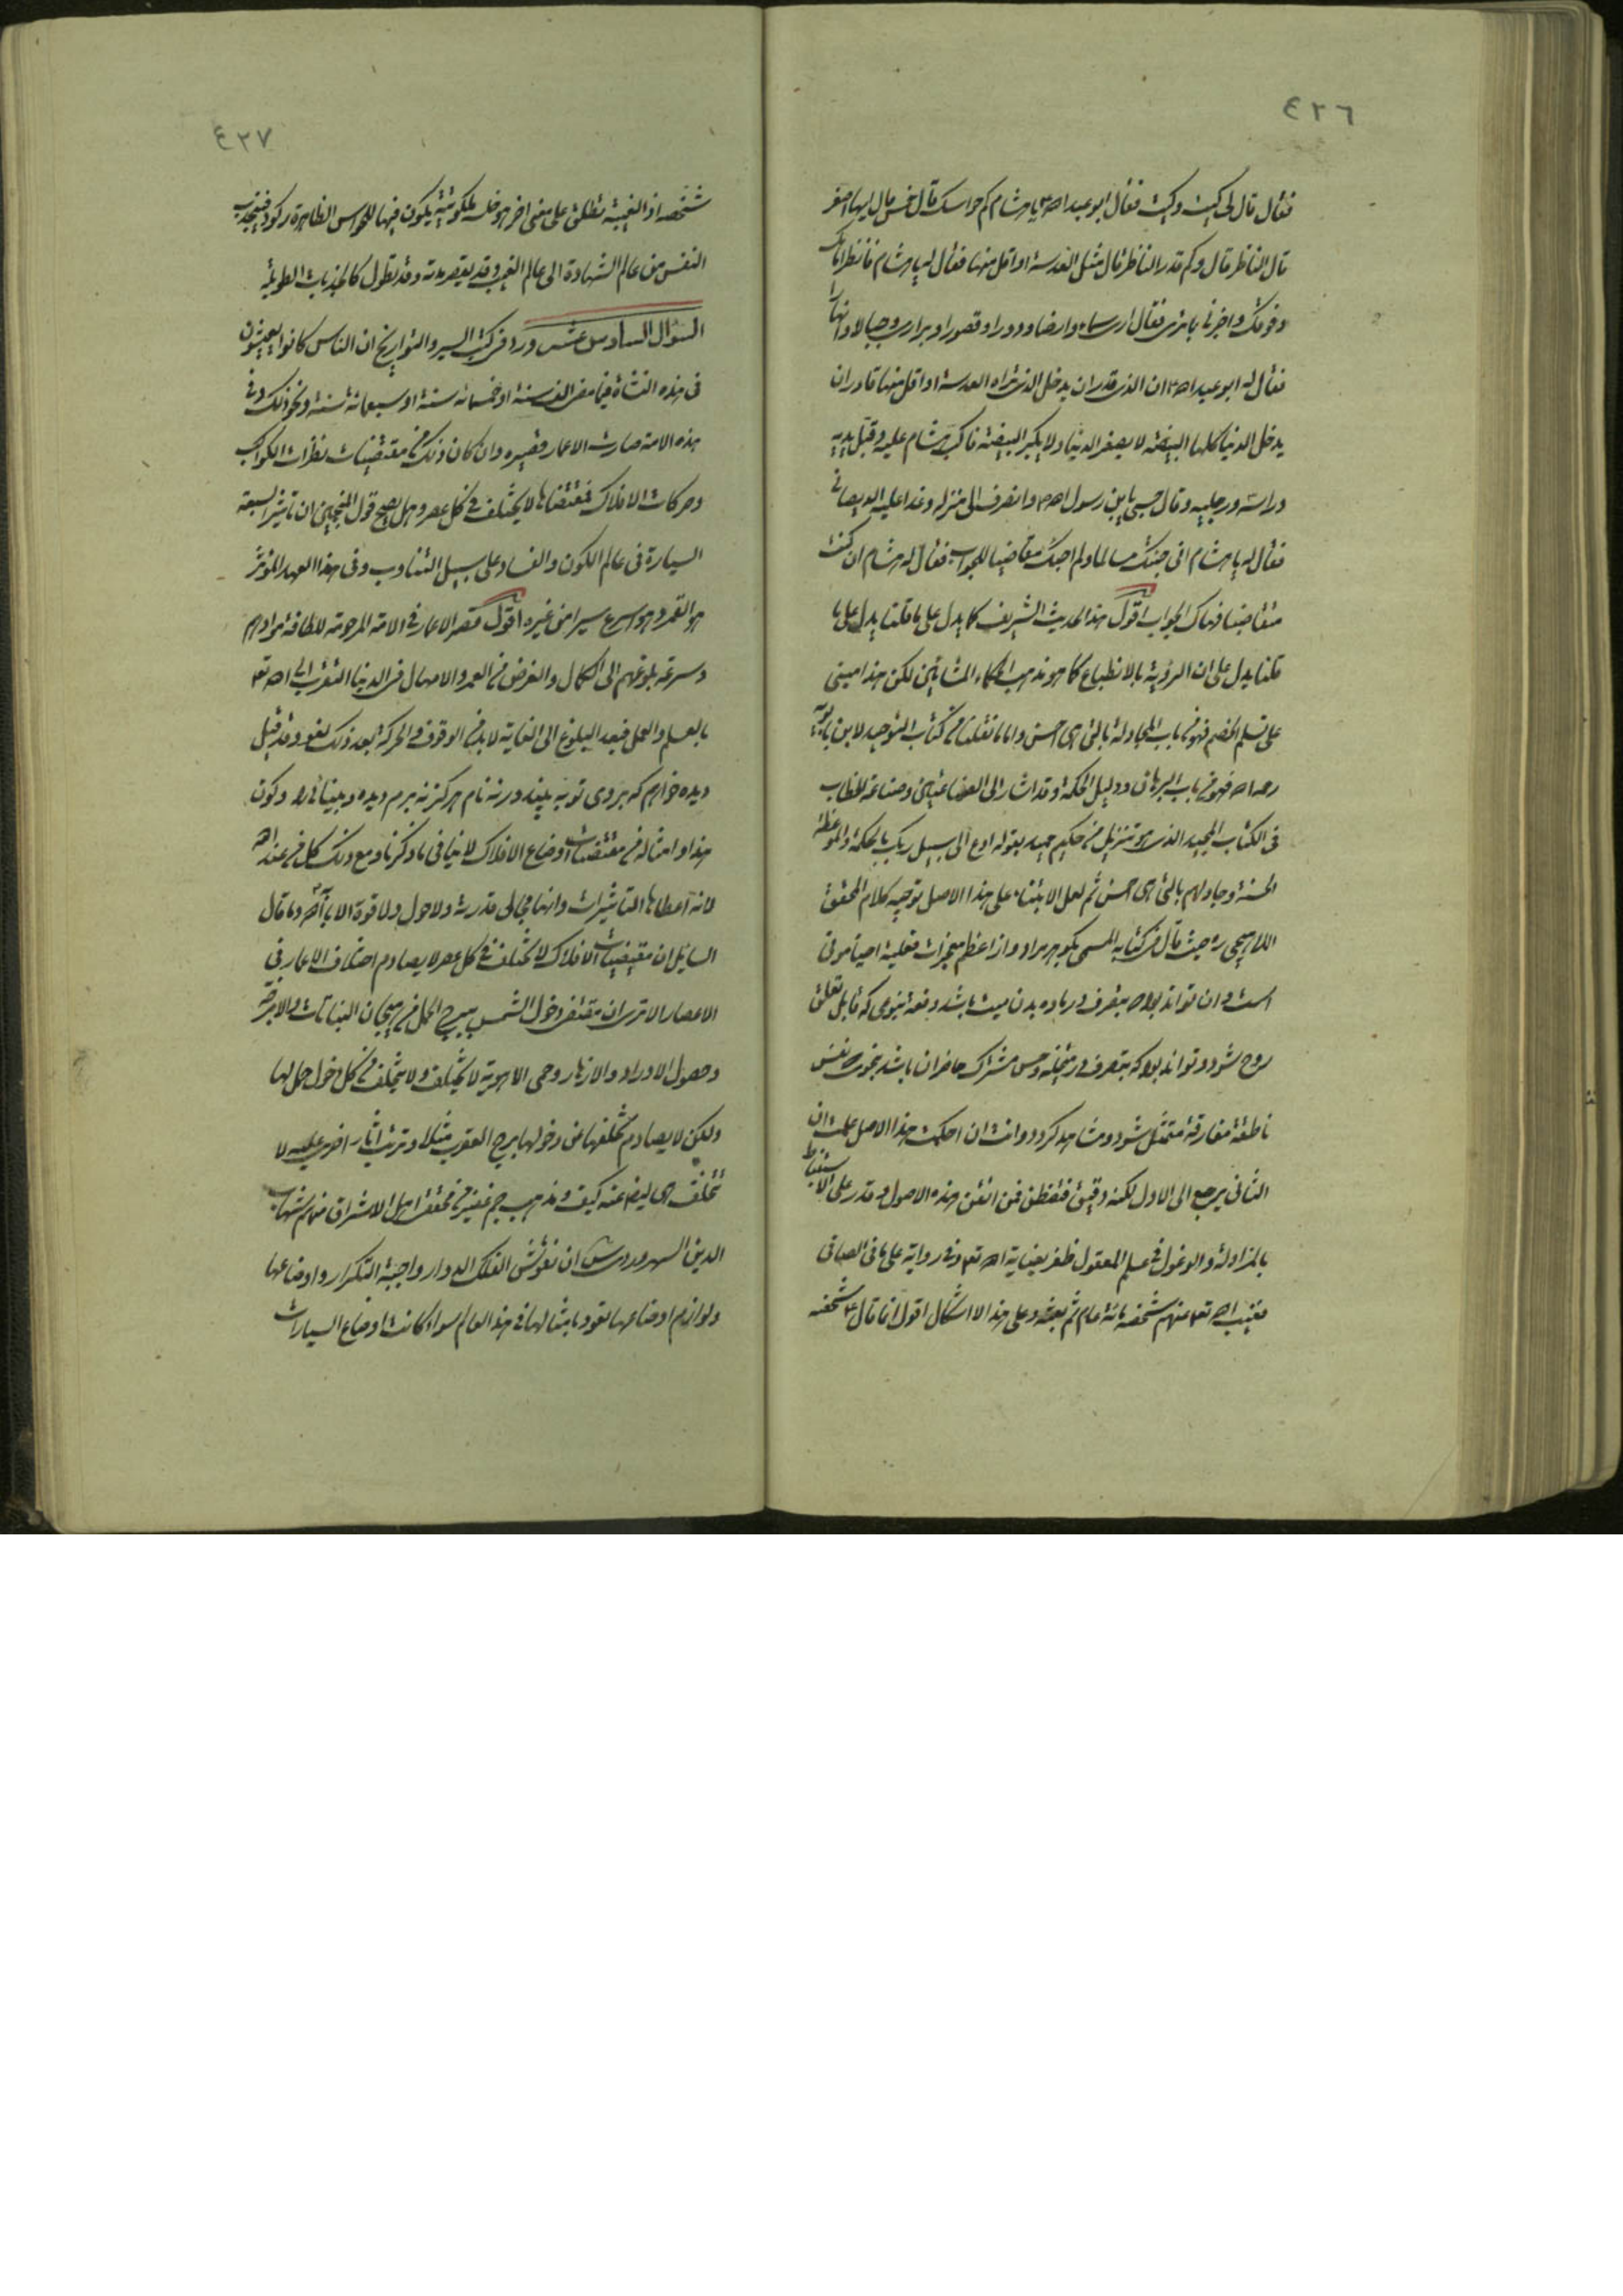 ٤٢٦
فقال قال لى كيت وكيت فقال ابو عبد الله ع يا هشام كم حواسك قال خمس قال ايها اصغر
قال الناظر قال وكم قدر الناظر قال مثل العدسة او اقل منها فقال له يا هشام فانظر امامك
وفوقك واخبرنى بما ترى فقال ارى سماء وارضا ودورا وقصورا وبرارى وجبالا وانهارا
فقال له ابو عبد الله ع ان الذى قدر ان يدخل الذى تراه العدسة او اقل منها قادر ان
يدخل الدنيا كلها البيضة لا يصغر الدنيا ولا يكبر البيضة فاكب هشام عليه وقبل يديه
وراسه ورجليه وقال حسبى يا بن رسول الله ص وانصرف الى منزله وغدا عليه الديصانى
فقال له يا هشام انى جئتك مسلما ولم اجئك متقاضيا للجواب فقال له هشام ان كنت
متقاضيا فهاك الجواب اقول هذا الحديث الشريف كما يدل على ما قلنا يدل على ما
قلنا يدل على ان الرؤية بالانطباع كما هو مذهب الحكماء المشائين لكن هذا مبنى
على تسلم الخصم فهو من باب المجادلة بالتى هى احسن واما ما نقلنا من كتاب التوحيد لابن بابويه
رحمه الله فهو من باب البرهان ودليل الحكمة وقد اشار الى الصناعتين وصناعة الخطاب
فى الكتاب المجيد الذى هو تنزيل من حكيم حميد بقوله ادع الى سبيل ربك بالحكمة والموعظة
الحسنة وجادلهم بالتى هى احسن ثم لعل الابتناء على هذا الاصل توجيه كلام المحقق
اللاهيجى ره حيث قال فى كتابه المسمى بكوهر مراد واز اعظم معجزات فعليه احياء موتى
است و ان تواند بود كه بتصرف در ماده بدن ميت باشد دفعة بنحوى كه قابل تعلق
روح شود و تواند بود كه بتصرف در متخيله و حس مشترك حاضران باشد بنحوى كه نفس
ناطقه مفارقه متمثل شود و مشاهد گردد وانت ان احكمت هذا الاصل علمت ان
الثانى يرجع الى الاول لكنه دقيق فتفطن فمن اتقن هذه الاصول وقدر على الاستنباط
بالمزاولة والوغول فى علم المعقول ظفر بعناية الله تعالى وفى رواية على ما فى الصافى
فغيب الله تعالى عنهم شخصه مائة عام ثم بعثه وعلى هذا لا اشكال اقول انما قال ع شخصه
٤٢٧
شخصه اذ الغيبة تطلق على معنى اخر هو خلسة ملكوتية يكون فيها للحواس الظاهرة ركود فينجذب
النفس من عالم الشهادة الى عالم الغيب وقد يقصر مدته وقد تطول كالجذبات الطويلة
السؤال السادس عشر ورد فى كتب السير والتواريخ ان الناس كانوا يعيشون
فى هذه النشأة فيما مضى الف سنة او خمسمائة سنة او سبعمائة سنة ونحو ذلك وفى
هذه الامة صارت الاعمار قصيرة وان كان ذلك من مقتضيات نظرات الكواكب
وحركات الافلاك فمقتضاها لا يختلف فى كل عصر وهل يصح قول المنجمين ان تاثير السبعة
السيارة فى عالم الكون والفساد على سبيل التناوب وفى هذا العهد المؤثر
هو القمر وهو اسرع سيرا من غيره اقول قصر الاعمار فى الامة المرحومة للطافة موادهم
وسرعة بلوغهم الى الكمال والغرض من العمر والامهال فى الدنيا التقرب الى الله تعالى
بالعلم والعمل فبعد البلوغ الى الغاية لا بد من الوقوف والحركة بعد ذلك لغو وقد قيل
ديده خواهم كه بروى تو به بيند ورنه نام هرگز نه برم ديده و بينائى را وكون
هذا وامثاله من مقتضيات اوضاع الافلاك لا ينافى ما ذكرنا ومع ذلك كل من عند الله
لانه اعطاها التاثيرات وانها مجالى قدرته ولا حول ولا قوة الا بالله وما قال
السايل ان مقتضيات الافلاك لا تختلف فى كل عصر لا يصادم اختلاف الاعمار فى
الاعصار الا ترى ان مقتضى دخول الشمس ببرج الحمل من هيجان النباتات والابخرة
وحصول الاوراد والازهار وحمى الاهوية لا يختلف ولا يتخلف فى كل دخول حمل لها
ولكن لا يصادم تخلفها من دخولها برج العقرب مثلا وترتب اثار اخرى عليه لا
تتخلف هى ايضا عنه كيف ومذهب جم غفير من محققى اهل الاشراق منهم شهاب
الدين السهروردى س ان نفوس الفلك الدوار واجبة التكرار واوضاعها
ولوازم اوضاعها تعود بامثالها فى هذا العالم سواء كانت اوضاع السيارات